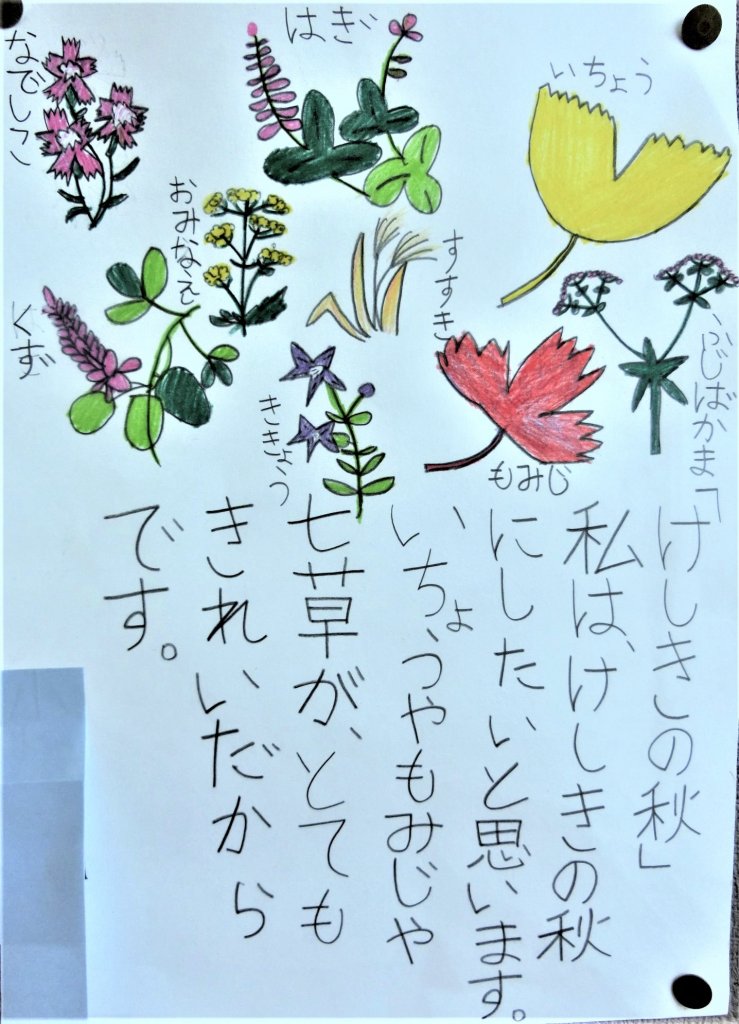 なでしこ
はぎ
いちょう
おみなえし
くず
すすき
ききょう
もみじ
ふじばかま
「けしきの秋」
私は、けしきの秋
にしたいと思います。
いちょうやもみじや
七草が、とても
きれいだから
です。